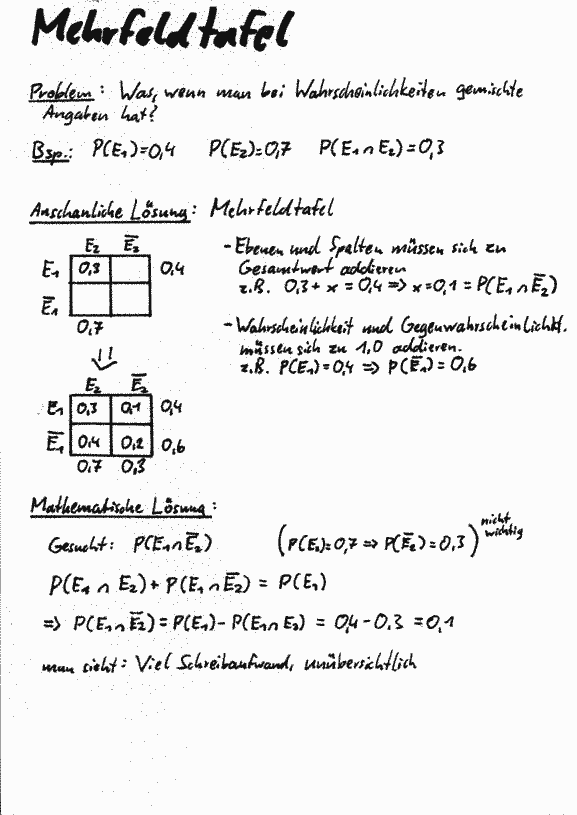 Mehrfeldtafel
Problem: Was, wenn man bei Wahrscheinlichkeiten gemischte
Angaben hat?
Bsp.: P(E₁)=0,4 P(E₂)=0,7 P(E₁∩E₂)=0,3
Anschauliche Lösung: Mehrfeldtafel
E₂ E̅₂
E₁ 0,3 0,4
E̅₁
0,7
- Ebenen und Spalten müssen sich zu
Gesamtwert addieren
z.B. 0,3 + x = 0,4 => x=0,1 = P(E₁∩E̅₂)
- Wahrscheinlichkeit und Gegenwahrscheinlichkt.
müssen sich zu 1,0 addieren.
z.B. P(E₁)=0,4 => P(E̅₁)=0,6
E₂ E̅₂
E₁ 0,3 0,1 0,4
E̅₁ 0,4 0,2 0,6
0,7 0,3
Mathematische Lösung:
Gesucht: P(E₁∩E̅₂) (P(E₂)=0,7 => P(E̅₂)=0,3) nicht
wichtig
P(E₁∩E₂)+P(E₁∩E̅₂) = P(E₁)
=> P(E₁∩E̅₂)=P(E₁)-P(E₁∩E₂) = 0,4-0,3 =0,1
man sieht: Viel Schreibaufwand, unübersichtlich